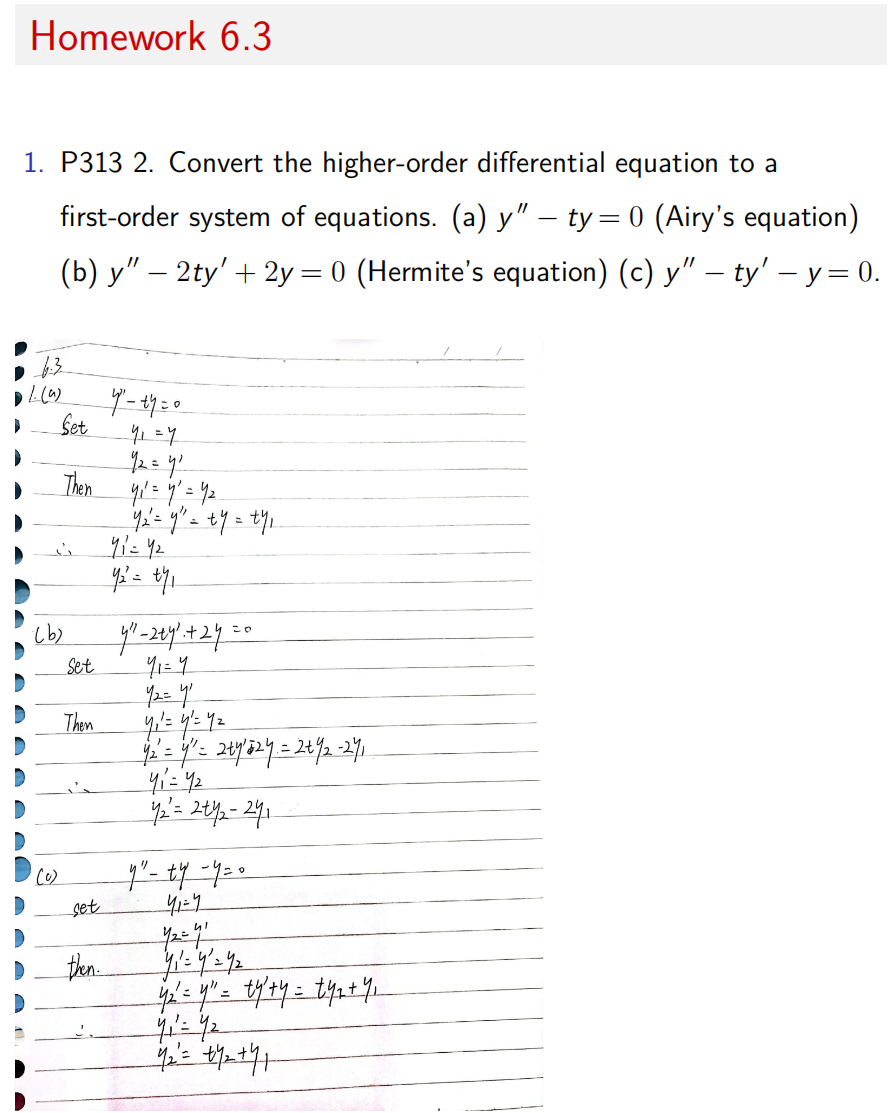 Homework 6.3
1. P313 2. Convert the higher-order differential equation to a
first-order system of equations. (a) y″ − ty = 0 (Airy's equation)
(b) y″ − 2ty′ + 2y = 0 (Hermite's equation) (c) y″ − ty′ − y = 0.
6.3
1.(a) y'' - ty = 0
Set y₁ = y
y₂ = y'
Then y₁' = y' = y₂
y₂' = y'' = ty = ty₁
∴ y₁' = y₂
y₂' = ty₁
(b) y'' - 2ty' + 2y = 0
set y₁ = y
y₂ = y'
Then y₁' = y' = y₂
y₂' = y'' = 2ty' - 2y = 2ty₂ - 2y₁
∴ y₁' = y₂
y₂' = 2ty₂ - 2y₁
(c) y'' - ty' - y = 0
set y₁ = y
y₂ = y'
then. y₁' = y' = y₂
y₂' = y'' = ty' + y = ty₂ + y₁
∴ y₁' = y₂
y₂' = ty₂ + y₁